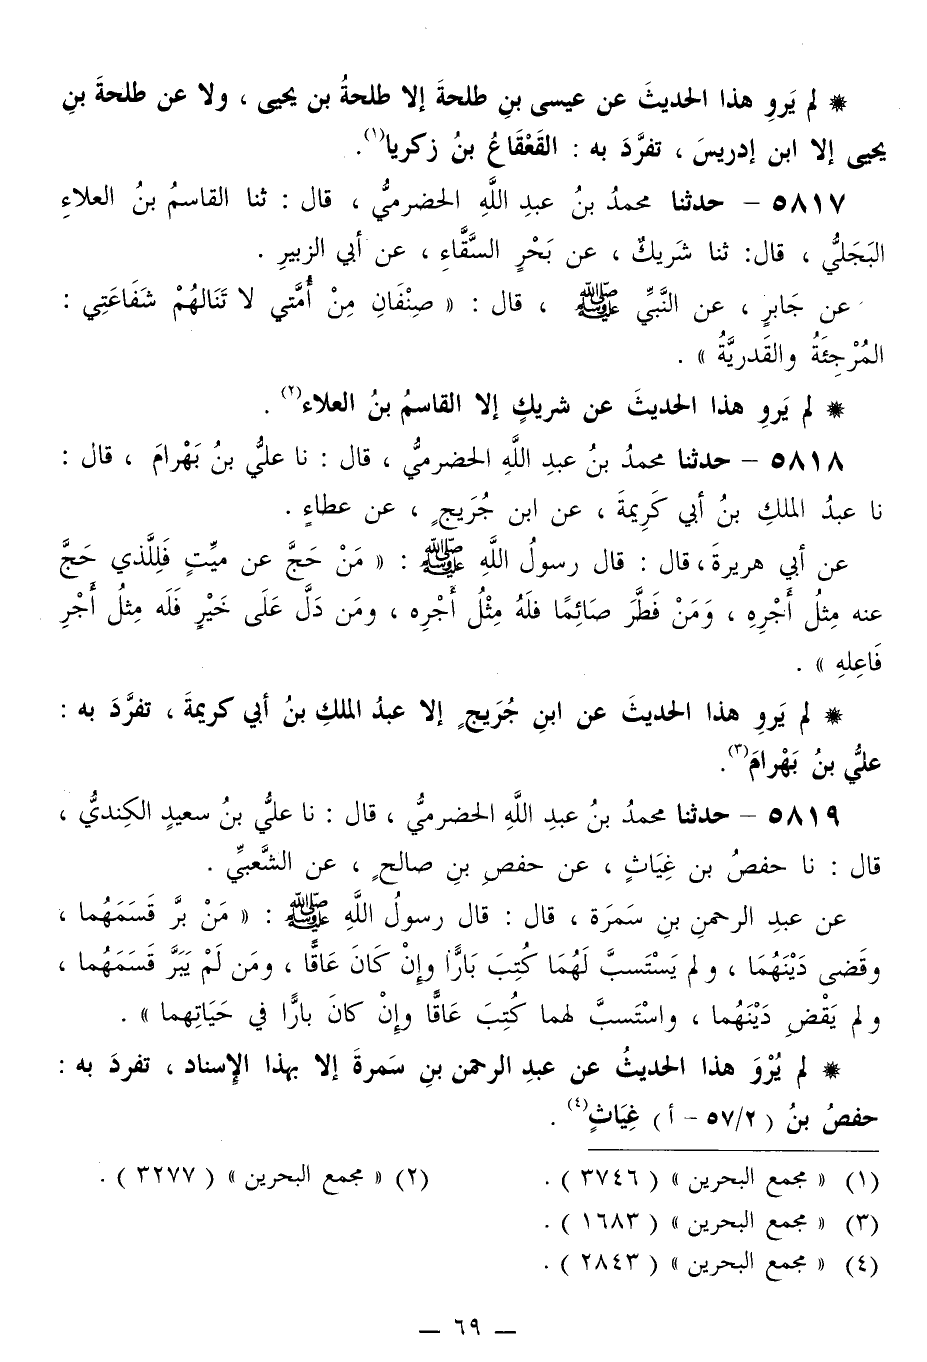 * لم يَروِ هذا الحديثَ عن عيسى بنِ طلحةَ إلا طلحةُ بن يحيى ، ولا عن طلحةَ بنِ
يحيى إلا ابن إدريسَ ، تفرَّدَ به : القَعْقَاعُ بنُ زكريا(١).
٥٨١٧ – حدثنا محمدُ بنُ عبدِ اللَّهِ الحضرميُّ ، قال : ثنا القاسمُ بنُ العلاءِ
البَجَليُّ ، قال: ثنا شَريكٌ ، عن بَحْرٍ السَّقَّاءِ ، عن أبي الزبيرِ .
عن جَابرٍ ، عن النَّبيِّ ﷺ ، قال : « صِنْفَانِ مِنْ أُمَّتي لا تَنَالهُمْ شَفَاعَتِي :
المُرْجِئَةُ والقَدريَّةُ » .
* لم يَروِ هذا الحديثَ عن شريكٍ إلا القاسمُ بنُ العلاء(٢) .
٥٨١٨ – حدثنا محمدُ بنُ عبدِ اللَّهِ الحضرميُّ ، قال : نا عليُّ بنُ بَهْرامَ ، قال :
نا عبدُ الملكِ بنُ أبي كَرِيمةَ ، عن ابن جُرَيجٍ ، عن عطاءٍ .
عن أبي هريرةَ ، قال : قال رسولُ اللَّهِ ﷺ : « مَنْ حَجَّ عن ميِّتٍ فَلِلَّذي حَجَّ
عنه مِثلُ أَجْرِهِ ، وَمَنْ فَطَّرَ صَائِمًا فلَهُ مِثْلُ أَجْرِه ، ومَن دَلَّ عَلَى خَيْرٍ فَلَه مِثلُ أَجْرِ
فَاعِلهِ » .
* لم يَروِ هذا الحديثَ عن ابنِ جُرَيجٍ إلا عبدُ الملكِ بنُ أبي كريمةَ ، تفرَّدَ به :
عليُّ بنُ بَهْرامَ(٣).
٥٨١٩ – حدثنا محمدُ بنُ عبدِ اللَّهِ الحضرميُّ ، قال : نا عليُّ بنُ سعيدٍ الكِنديُّ ،
قال : نا حفصُ بن غِيَاثٍ ، عن حفصِ بنِ صالحٍ ، عن الشَّعبيِّ .
عن عبدِ الرحمنِ بنِ سَمرَة ، قال : قال رسولُ اللَّهِ ﷺ : « مَنْ برَّ قَسَمَهُما ،
وقضى دَيْنَهُمَا ، ولم يَسْتَسبَّ لَهُمَا كُتِبَ بَارًّا وإِنْ كَانَ عَاقًّا ، ومَن لَمْ يَبَرَّ قَسَمَهُما ،
ولم يَقْضِ دَيْنَهُما ، واسْتَسبَّ لهما كُتِبَ عَاقًّا وإِنْ كانَ بارًّا في حَيَاتِهما » .
* لم يُرْوَ هذا الحديثُ عن عبدِ الرحمن بنِ سَمرةَ إلا بهذا الإسناد ، تفردَ به :
حفصُ بنُ ( ٥٧/٢ – أ ) غِيَاثٍ(٤) .
(١) « مجمع البحرين » ( ٣٧٤٦ ) . (٢) « مجمع البحرين » ( ٣٢٧٧ ) .
(٣) « مجمع البحرين » ( ١٦٨٣ ) .
(٤) « مجمع البحرين » ( ٢٨٤٣ ) .
– ٦٩ –